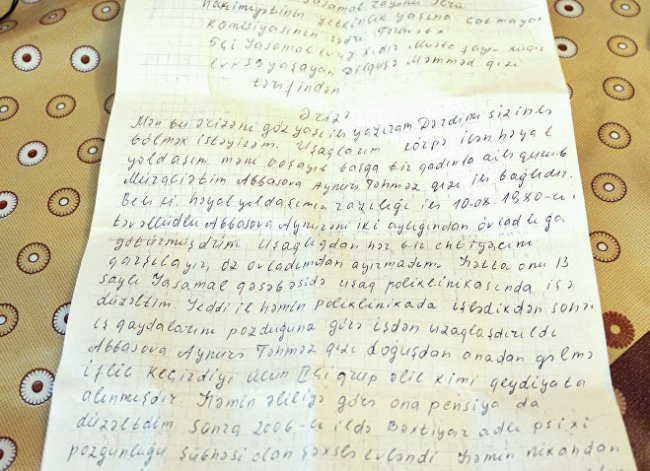 Yasamal rayonu İcra
Hakimiyyətinin yetkinlik yaşına çatmayan
Komissiyasının sədri
5çi Yasamal
39 yaşayan Məmməd qızı
tərəfindən
Ərizə
Mən bu ərizəni göz yaşı ilə yazıram. Dərdimi sizinlə
bölmək istəyirəm. Uşaqlarım körpə ikən həyat
yoldaşım məni boşayıb başqa bir qadınla ailə qurub
Müraciətim Abbasova Aynurə Təhməz qızı ilə bağlıdır.
Belə ki, həyat yoldaşımın razılığı ilə 10.08.1980-ci i
təvəllüdlü Abbasova Aynurəni iki aylığından övladlığa
götürmüşdüm Uşaqlıqdan hər bir ehtiyacını
qarşılayır, öz övladımdan ayırmadım. Hətta onu 13
saylı Yasamal qəsəbəsidə uşaq poliklinikasında işə
düzəltdim Yeddi il həmin poliklinikada işlədikdən sonra
iş qaydalarını pozduğuna görə işdən uzaqlaşdırıldı
Abbasova Aynurə Təhməz qızı doğuşdan anadan gəlmə
iflic keçirdiyi üçün II çi qrup əlil kimi qeydiyata
alınmışdır. Həmin əlilliyə görə ona pensiya da
düzəltdim sonra 2006-cı ildə Bəxtiyar adlı psixi
pozgunluğu şübhəsi olan şəxslə evləndi Həmin nikahdan